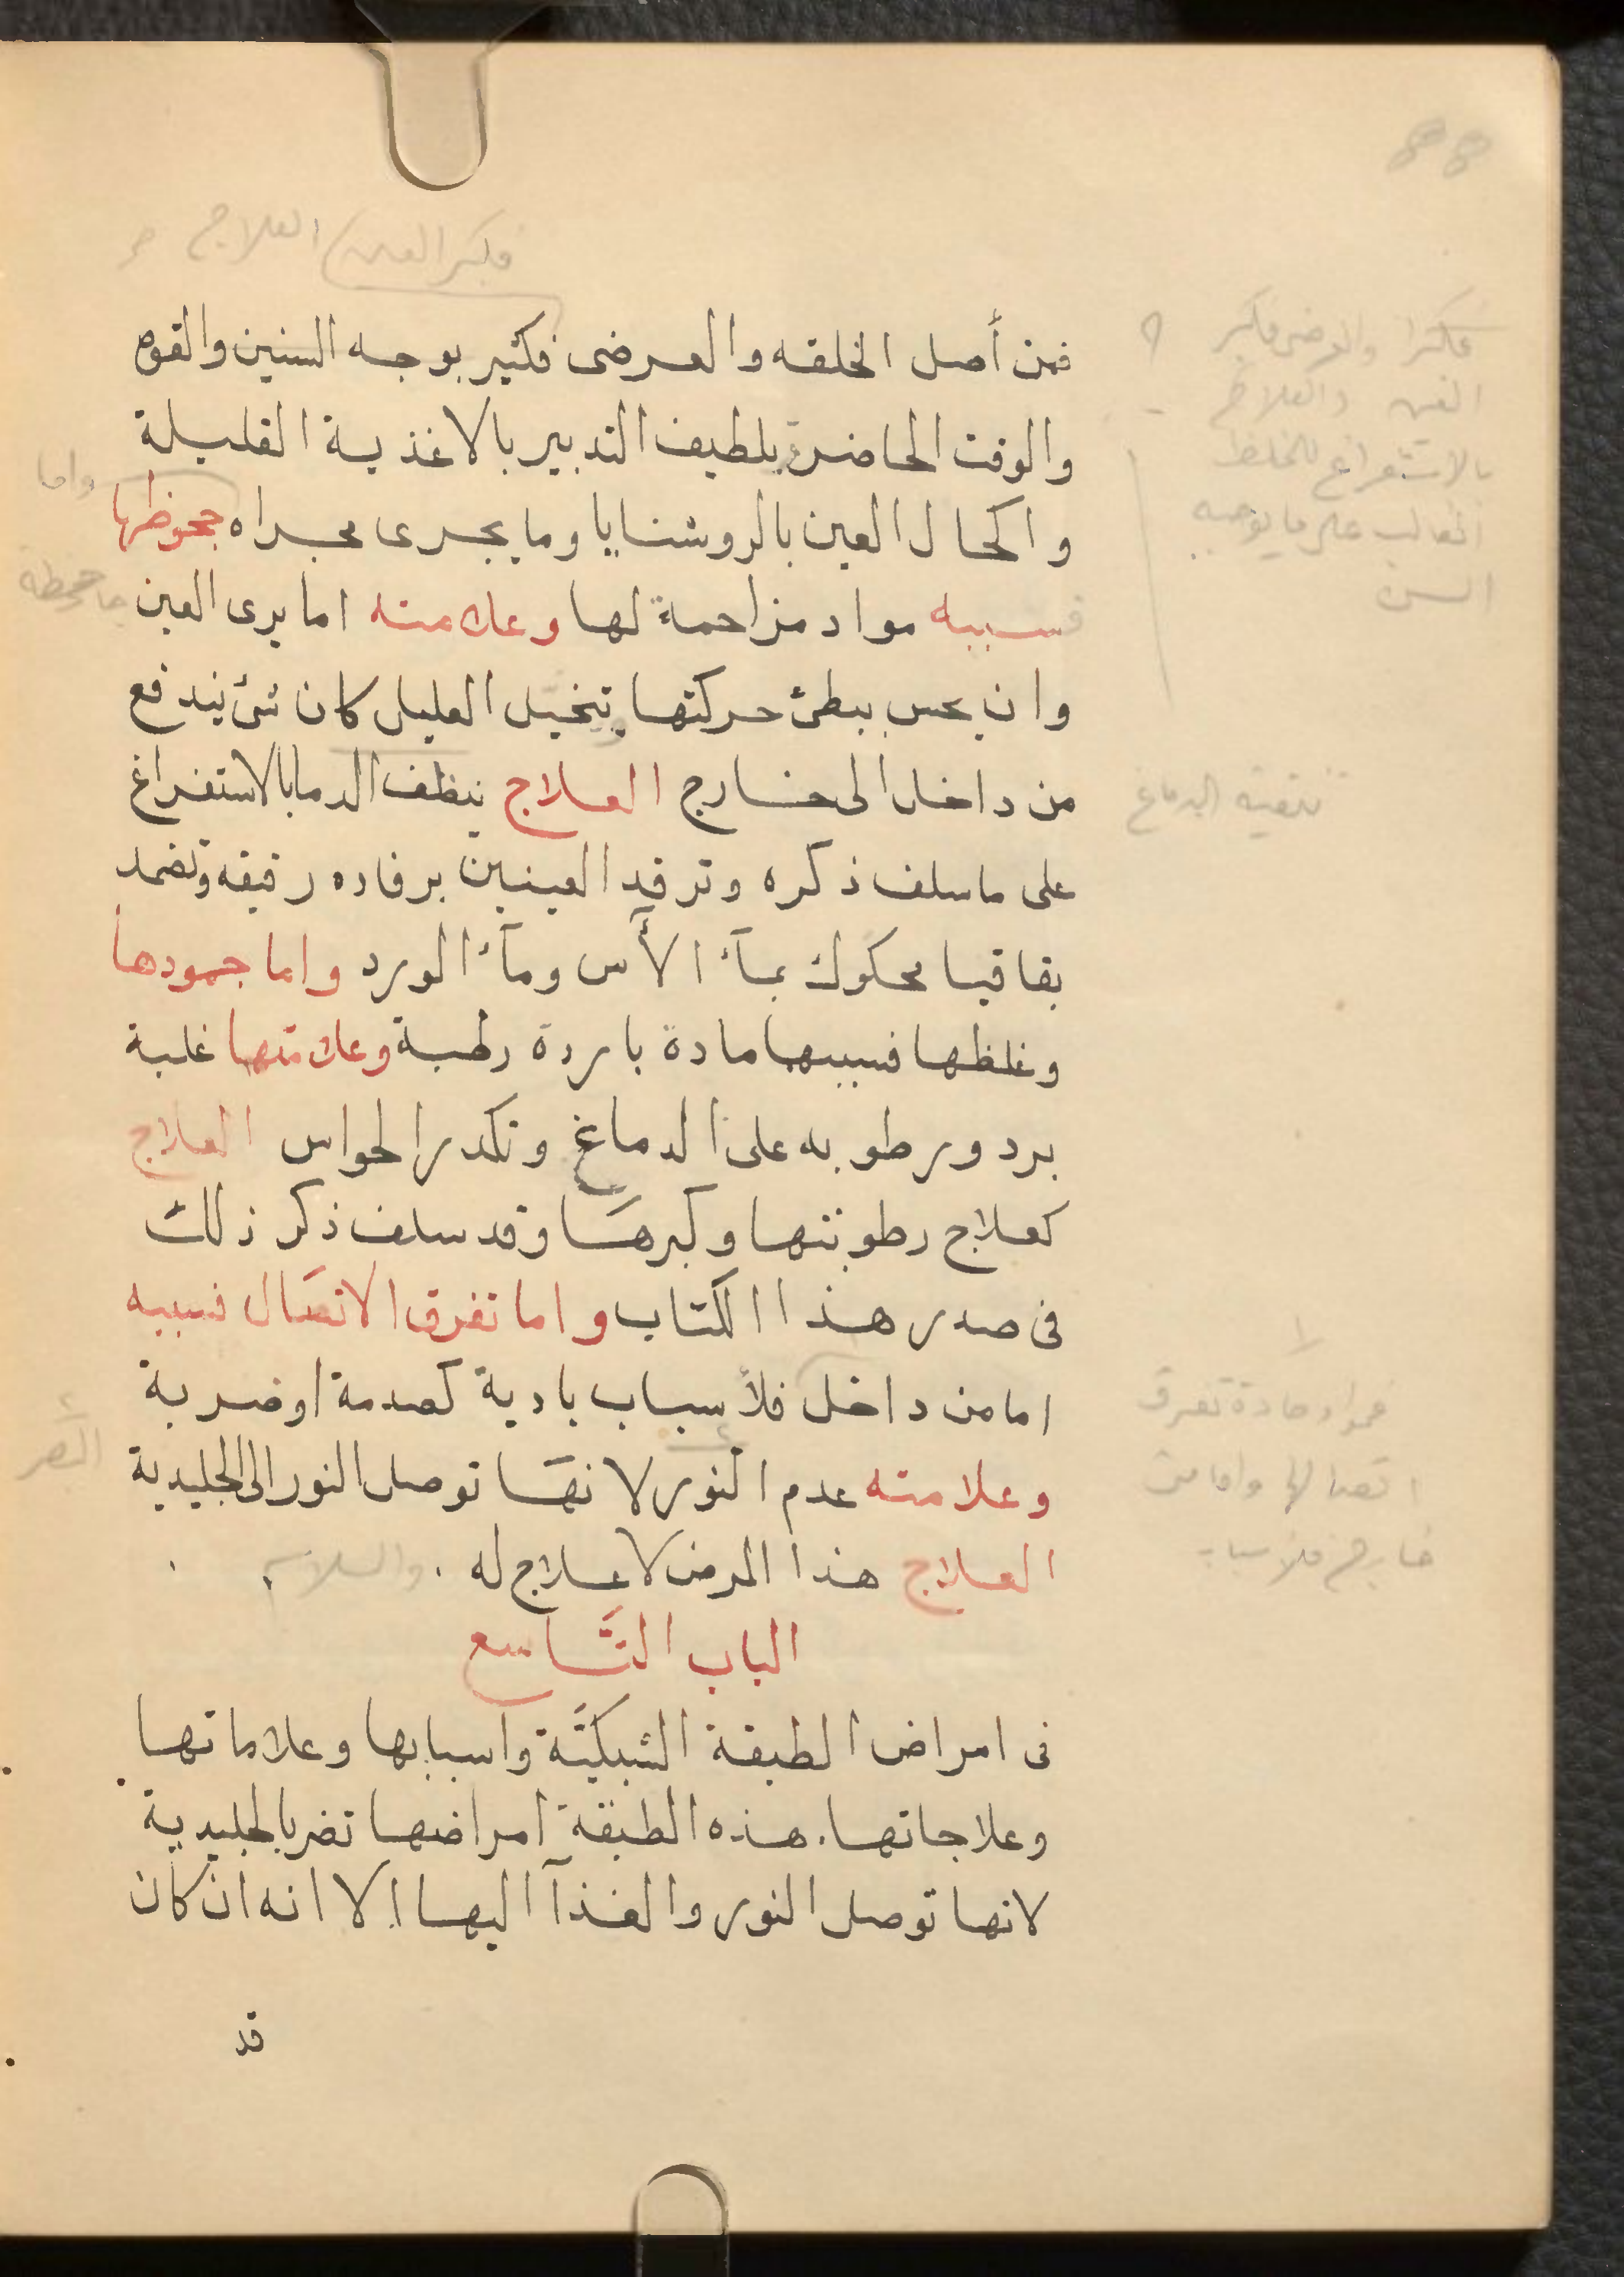 فكبر العين العلاج
فمن أصل الخلقه والعرضى فكثير بوجه السنين والقوه
والوقت الحاضرة بلطيف التدبير بالاغذية القليلة
واكحال العين بالروشنايا وما يجرى مجراه جحوظها
فسببه مواد مزاحمة لها وعلامته اما يرى العين
وان يحس ببطئ حركتها يتخيل العليل كان شئ يندفع
من داخل الى خارج العلاج ينظف الدما بالاستفراغ
على ما سلف ذكره وترفد العينين برفاده رقيقه وتضمد
بقاقيا محكوك بمآء الأس ومآء الورد واما جمودها
وغلظها فسببها مادة باردة رطبة وعلامتها غلبة
برد ورطوبه على الدماغ وتكدر الحواس العلاج
كعلاج رطوبتها وكبرها وقد سلف ذكر ذلك
فى صدر هذا الكتاب واما تفرق الاتصال فسببه
اما من داخل فلأسباب بادية كصدمة اوضربة
وعلامته عدم النور لانها توصل النور الى الجليدية
العلاج هذا المرض لا علاج له . والسلام
الباب التاسع
فى امراض الطبقة الشبكية واسبابها وعلاماتها
وعلاجاتها . هذه الطبقة امراضها تضر بالجليدية
لانها توصل النور والغذآ اليها الا انه ان كان
قد
والعرضى فكبر
العين والعلاج
بالاستفراغ للخلط
الغالب على ما يوجبه
السن
تنقية الدماغ
فمواد حادة تفرق
اتصالها واما من
خارج فلأسباب
واما
جاحظة
البصر